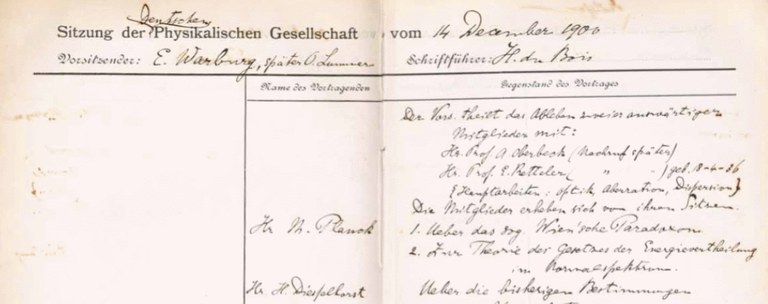 Deutschen
Sitzung der Physikalischen Gesellschaft vom 14 December 1900
Vorsitzender: E. Warburg, später O. Lummer Schriftführer: H. du Bois
Name des Vortragenden Gegenstand des Vortrages
Der Vors. theilt das Ableben zweier auswärtiger
Mitglieder mit:
Hr. Prof. A. Oberbeck (Nachruf später)
Hr. Prof. E. Ketteler ( " - ) geb.
(Hauptarbeiten: optik. Aberration, Dispersion)
Die Mitglieder erheben sich von ihren Sitzen.
Hr M. Planck 1. Ueber das sog. Wien'sche Paradoxon
2. Zur Theorie des Gesetzes der Energievertheilung
im Normalspektrum.
Hr H. Diesselhorst Ueber die bisherigen Bestimmungen